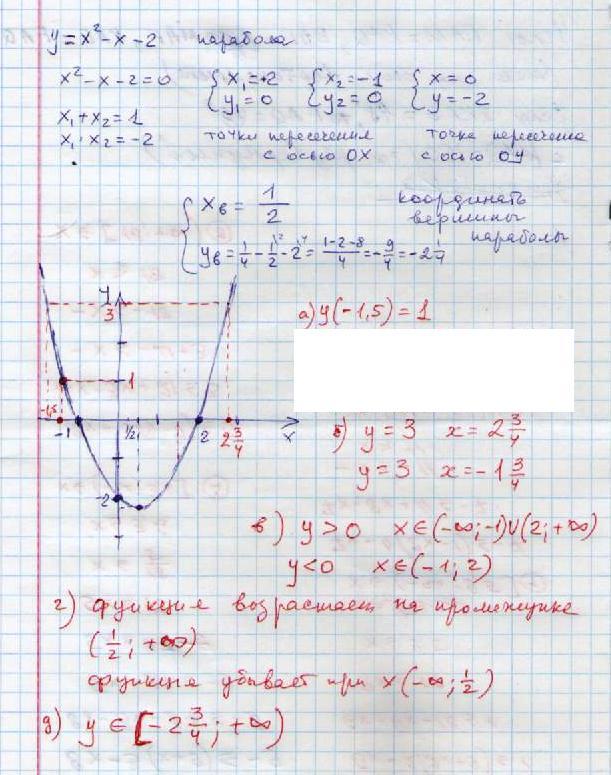 y = x² - x - 2 парабола
x² - x - 2 = 0 { x₁ = +2 { x₂ = -1 { x = 0
y₁ = 0 y₂ = 0 y = -2
x₁ + x₂ = 1
x₁ · x₂ = -2
точки пересечения
с осью OX
точка пересечения
с осью OY
{ xв = 1/2
yв = 1/4 - 1/2 - 2 = (1-2-8)/4 = -9/4 = -2 1/4
координаты
вершины
параболы
y
3
1
-1,5
-1
1/2
2
2 3/4
x
-2
а) y(-1,5) = 1
б) y = 3 x = 2 3/4
y = 3 x = -1 3/4
в) y > 0 x ∈ (-∞; -1) ∪ (2; +∞)
y < 0 x ∈ (-1; 2)
г) функция возрастает на промежутке
(1/2; +∞)
функция убывает при x (-∞; 1/2)
д) y ∈ [-2 3/4; +∞)